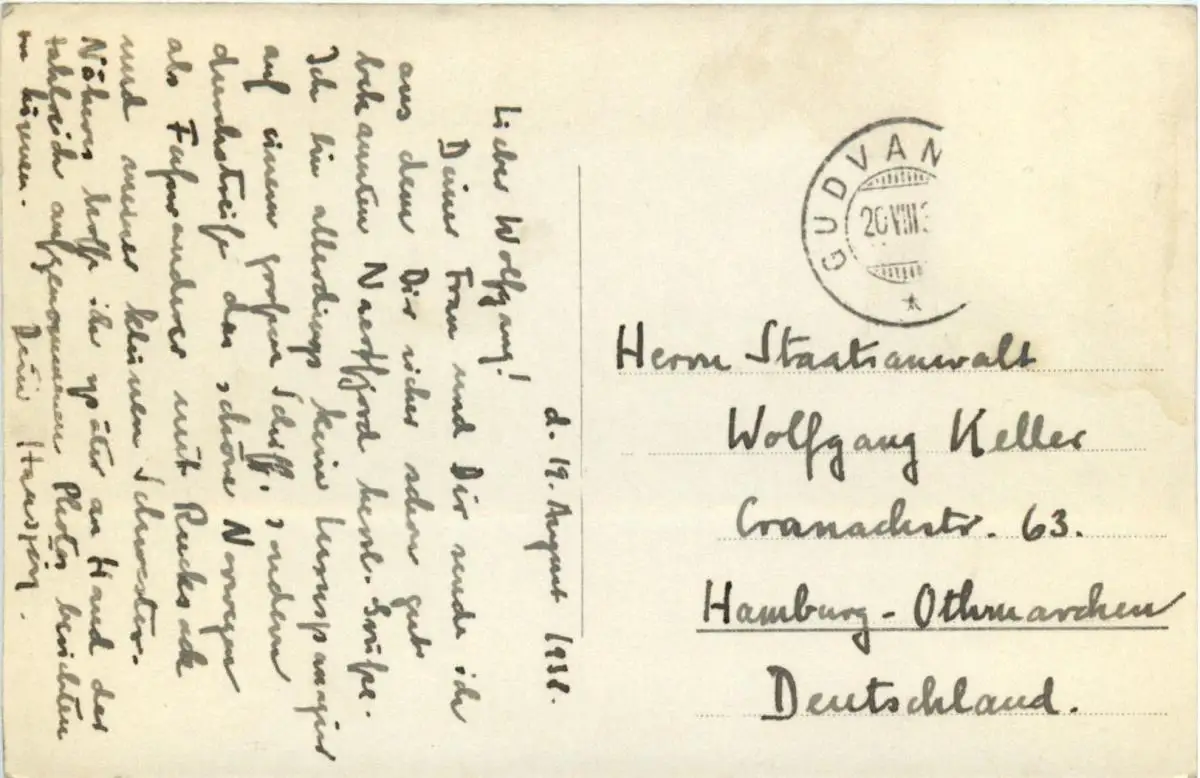 d. 19. August 1938.
Lieber Wolfgang!
Deiner Frau und Dir sende ich
aus dem Dir sicher schon gut
bekannten Naeröfjord herzl. Grüße.
Ich bin allerdings kein Luxuspassagier
auf einem großen Schiff, sondern
durchstreife das schöne Norwegen
als Fußwanderer mit Rucksack
und meiner kleinen Schwester.
Näheres hoffe ich später an Hand der
zahlreich aufgenommenen Photos berichten
zu können.
Dein
GUDVAN
20 VIII 3
Herrn Staatsanwalt
Wolfgang Keller
Cranachstr. 63.
Hamburg-Othmarchen
Deutschland.